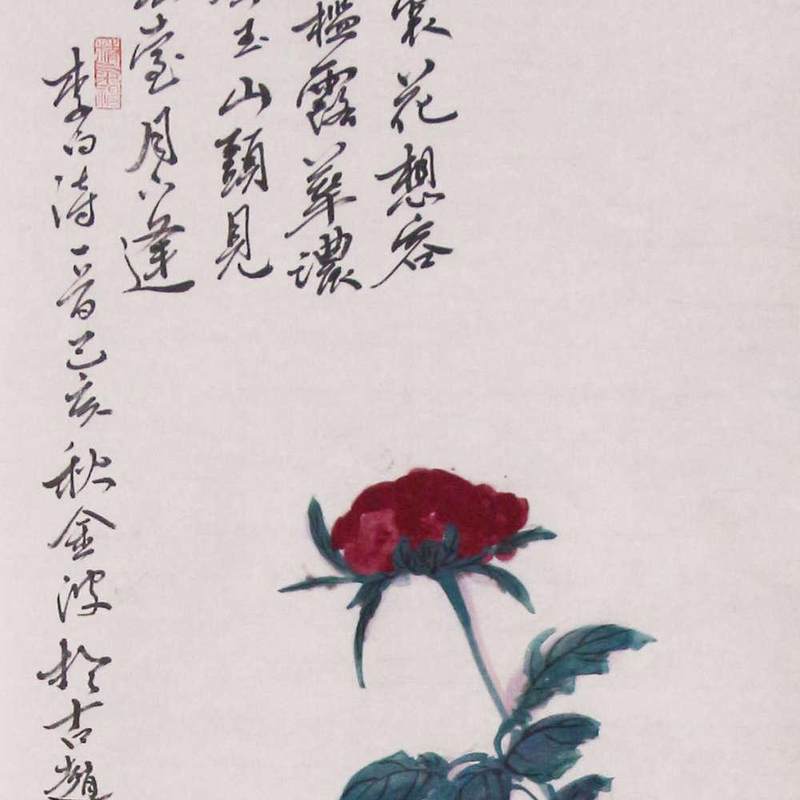 裳花想容
檻露華濃
玉山頭見
臺月下逢
李白詩一首己亥秋金波於古趙